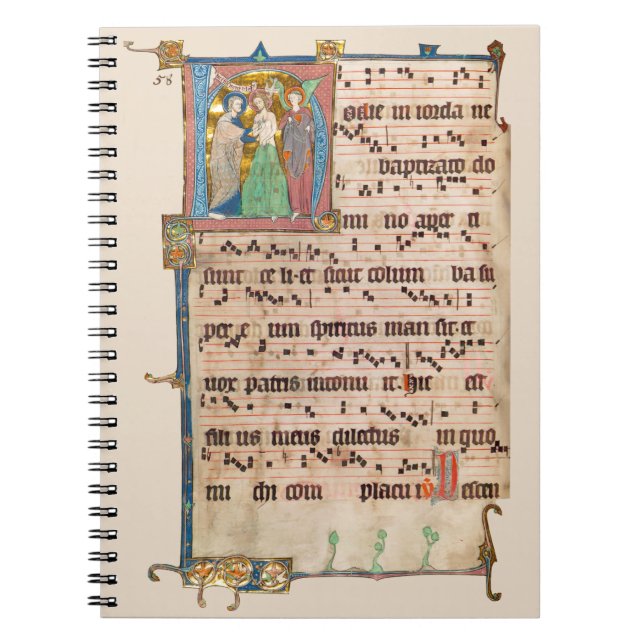 58
odie in iorda ne
baptizato do
mi no aper ti
sunt ce li et sicut colum ba su
per e um spiritus man sit et
vox patris intonu it hic est
fili us meus dilectus in quo
mi chi com placu it V Descen